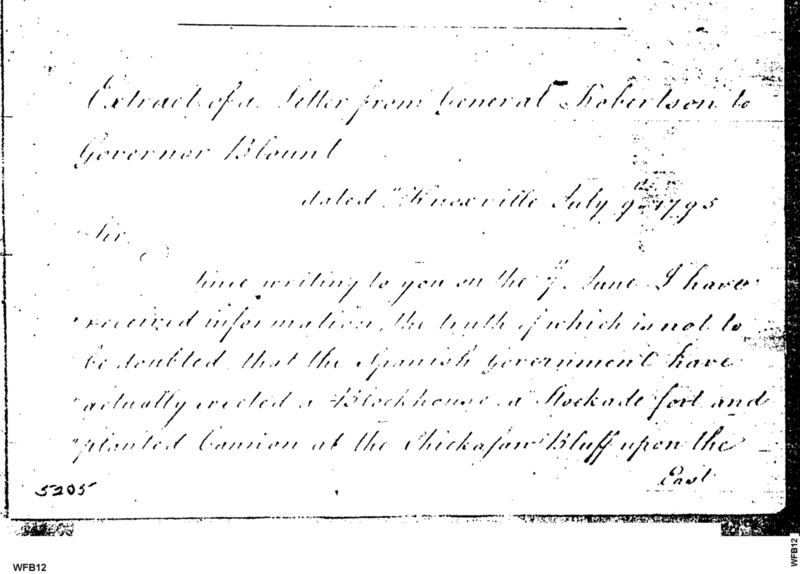 Extract of a Letter from General Robertson to
Governor Blount
dated "Knoxville July 9th 1795
Sir,
"Since writing to you on the 7th June I have
"received information, the truth of which is not to
"be doubted, that the Spanish Government have
"actually erected a Blockhouse a Stockade fort and
"planted Cannon at the Chickasaw Bluff upon the
East
5205
WFB12
WFB12